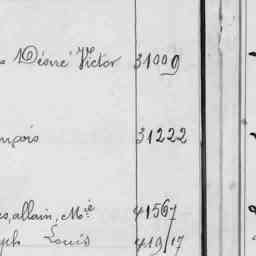 Désiré Victor 31009
nçois 31222
es, allain, Mie 41567
eph Louis 419/17